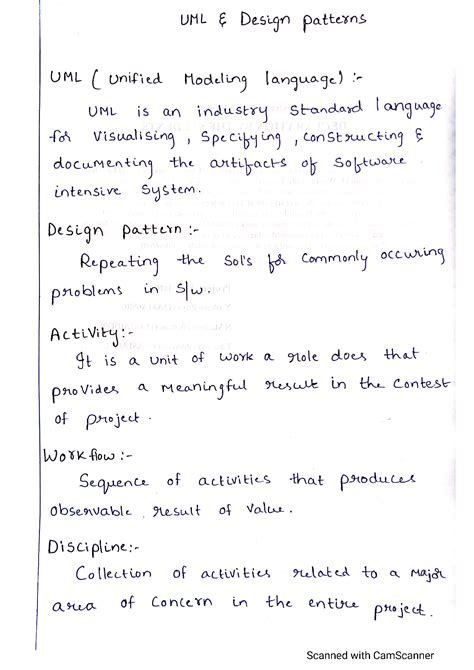 UML & Design patterns
UML ( Unified Modeling language) :-
UML is an industry standard language
for Visualising , Specifying , constructing &
documenting the artifacts of Software
intensive System.
Design pattern :-
Repeating the Sol's for Commonly occuring
problems in S/w.
Activity:-
It is a unit of work a role does that
provides a Meaningful result in the Contest
of project .
Work flow :-
Sequence of activities that produces
observable result of value .
Discipline:-
Collection of activities related to a Major
area of Concern in the entire project.
Scanned with CamScanner